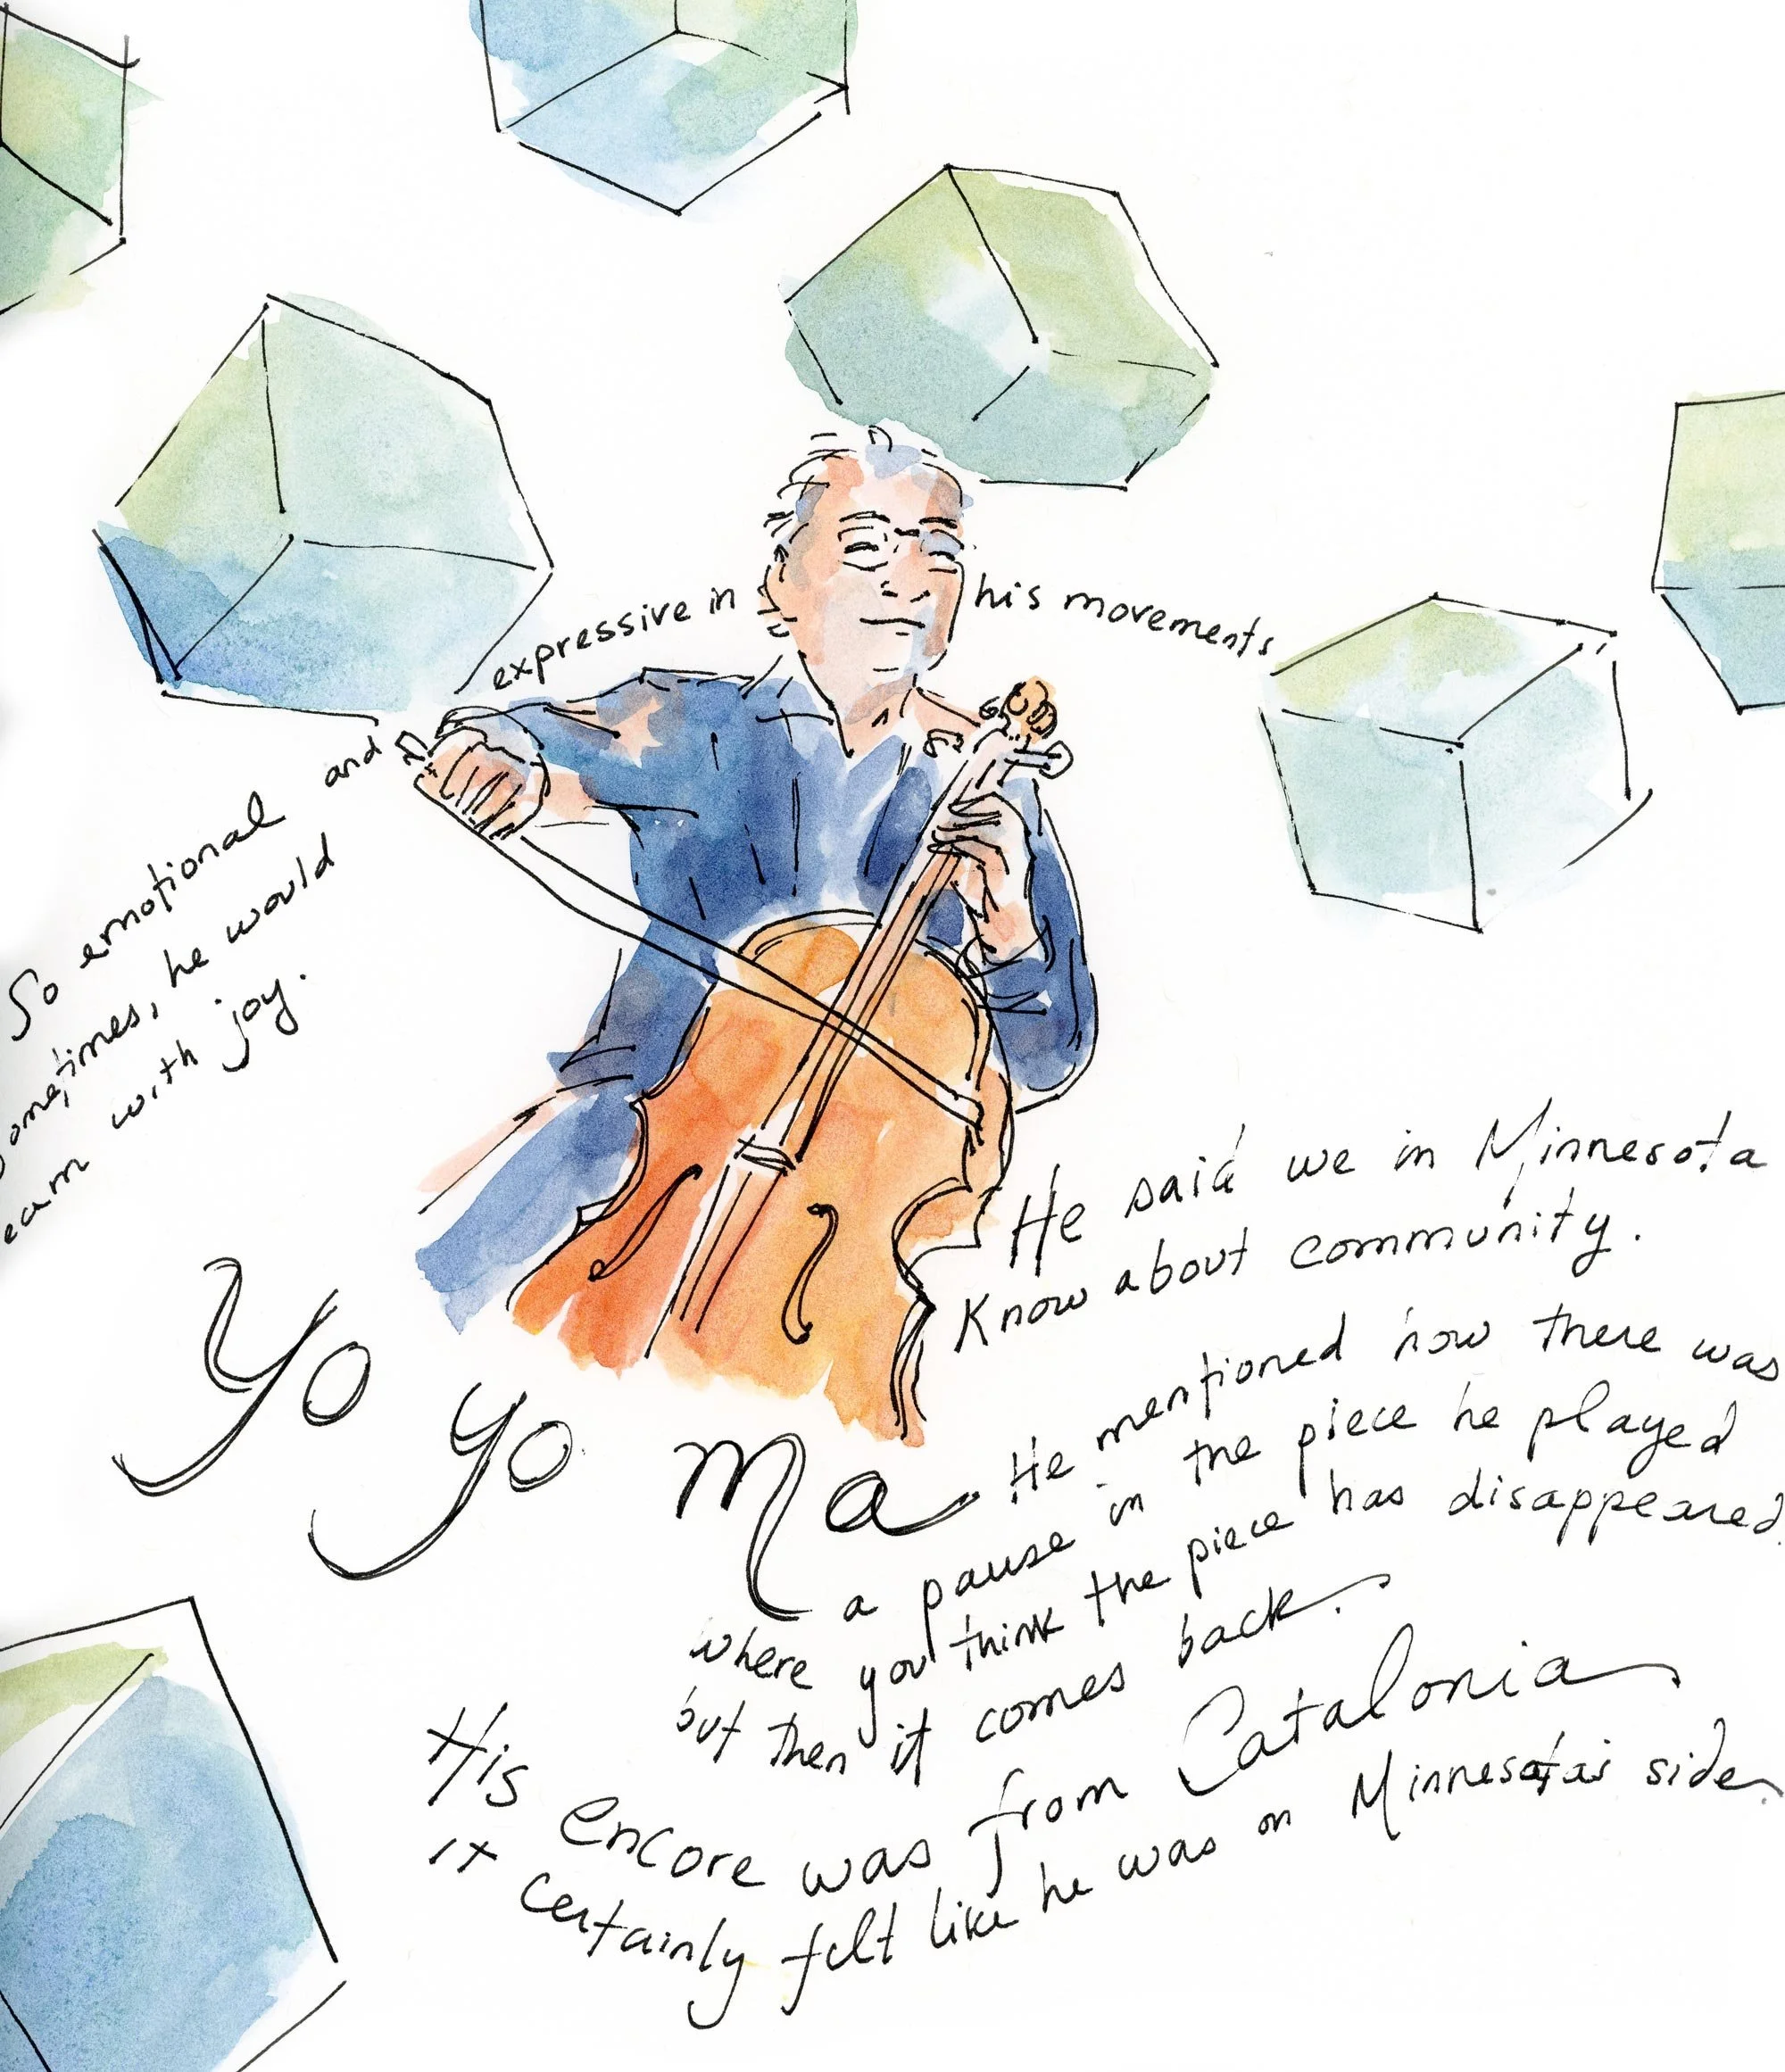 So emotional and expressive in his movements
ometimes, he would
eam with joy.
Yo Yo Ma
He said we in Minnesota
Know about community.
He mentioned how there was
a pause in the piece he played
where you think the piece has disappeared
but then it comes back.
His encore was from Catalonia
it certainly felt like he was on Minnesota's side.